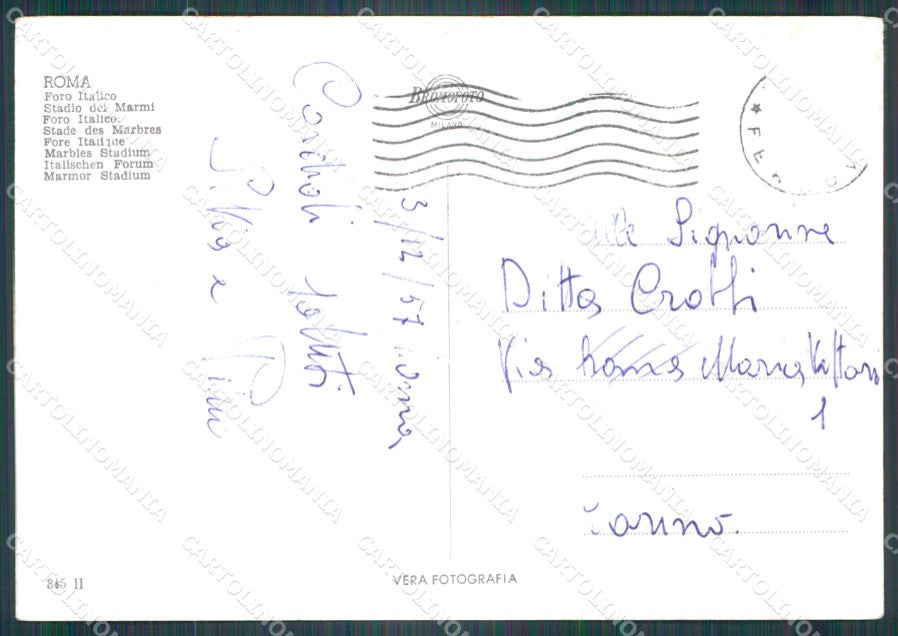 ROMA
Foro Italico
Stadio dei Marmi
Foro Italico.
Stade des Marbres
Fore Italique
Marbles Stadium
Italschen Forum
Marmor Stadium
BROMOFOTO
MILANO
3/12/57
Cordiali saluti
Silvia e
Signorine
Ditta Crotti
Via Roma Maria Vittoria
1
Torino.
345 II
VERA FOTOGRAFIA
CARTOLINOMANIA